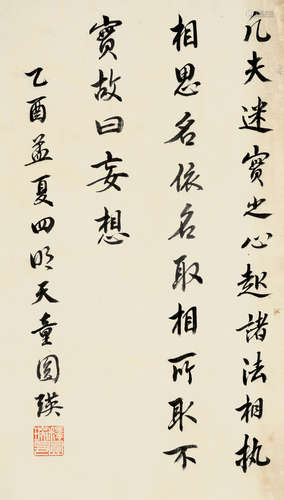 凡夫迷實之心起諸法相執
相思名依名取相所取不
實故曰妄想
乙酉孟夏四明天童圓瑛